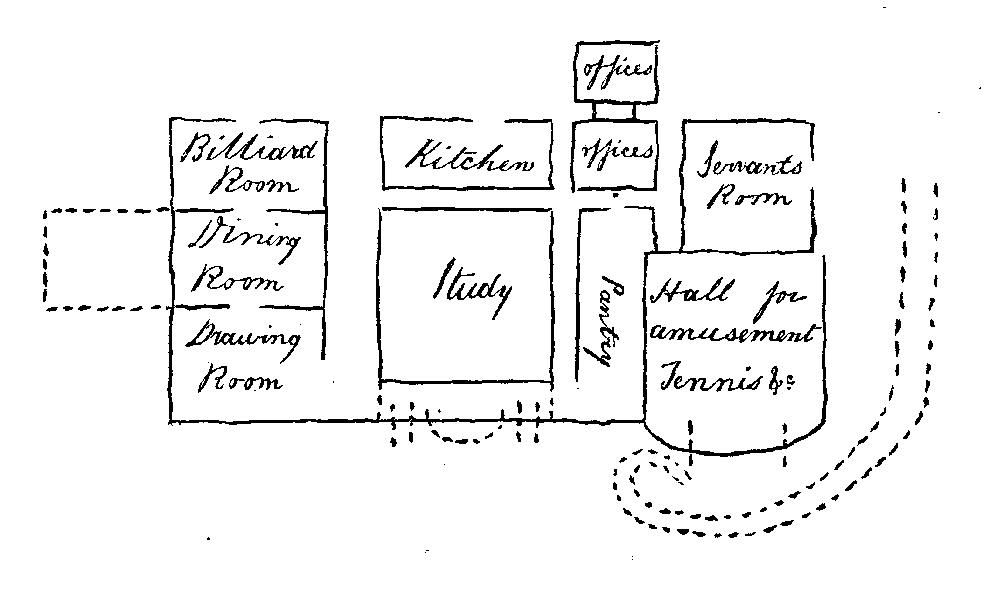 offices
Billiard
Room
Kitchen
offices
Servants
Room
Dining
Room
Study
Pantry
Hall for
amusement
Tennis &c
Drawing
Room